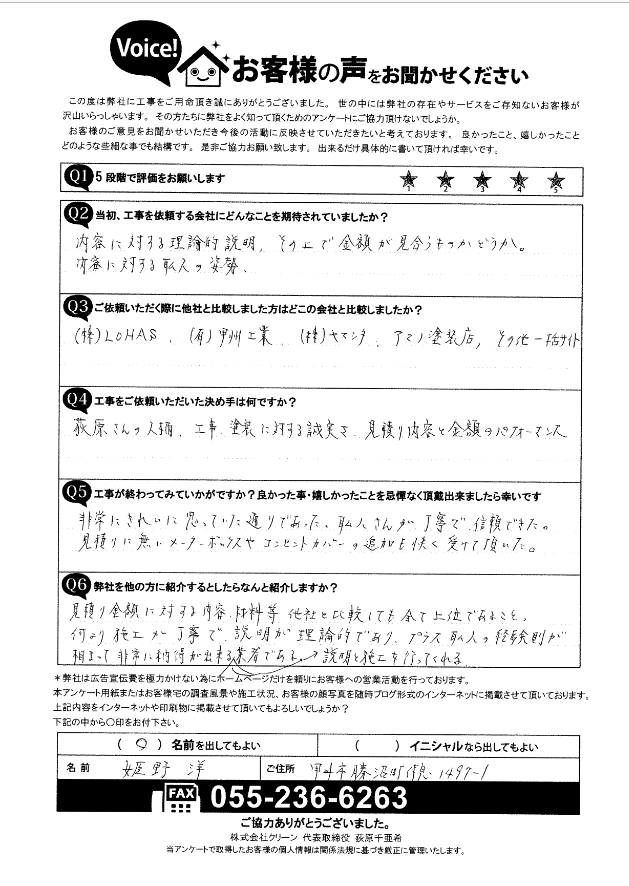 Voice!
お客様の声をお聞かせください
この度は弊社に工事をご用命頂き誠にありがとうございました。 世の中には弊社の存在やサービスをご存知ないお客様が
沢山いらっしゃいます。 その方たちに弊社をよく知って頂くためのアンケートにご協力頂けないでしょうか。
お客様のご意見をお聞かせいただき今後の活動に反映させていただきたいと考えております。 良かったこと、嬉しかったこと
どのような些細な事でも結構です。 是非ご協力お願い致します。 出来るだけ具体的に書いて頂ければ幸いです。
Q1 5段階で評価をお願いします
1 2 3 4 5
Q2 当初、工事を依頼する会社にどんなことを期待されていましたか？
内容に対する理論的説明、その上で金額が見合うものかどうか。
内容に対する職人の姿勢、
Q3 ご依頼いただく際に他社と比較しました方はどこの会社と比較しましたか？
(株)LOHAS、(有)甲州工業、(株)ヤマンタ、アマノ塗装店, その他一括サイト
Q4 工事をご依頼いただいた決め手は何ですか？
荻原さんの人柄、工事、塗装に対する誠実さ、見積り内容と金額のパフォーマンス
Q5 工事が終わってみていかがですか？良かった事・嬉しかったことを忌憚なく頂戴出来ましたら幸いです
非常にきれいに思っていた通りであった、職人さんが丁寧で信頼できた。
見積りに無いメーターボックスやコンセントカバーの追加も快く受けて頂いた。
Q6 弊社を他の方に紹介するとしたらなんと紹介しますか？
見積り金額に対する内容、材料等、他社と比較しても全て上位であること。
何より施工が丁寧で、説明が理論的であり、プラス職人の経験則が
相まって非常に納得が出来る業者である。 説明と施工を行ってくれる
＊弊社は広告宣伝費を極力かけない為にホームページだけを頼りにお客様への営業活動を行っております。
本アンケート用紙またはお客様宅の調査風景や施工状況、お客様の顔写真を随時ブログ形式のインターネットに掲載させて頂いております。
上記内容をインターネットや印刷物に掲載させて頂いてもよろしいでしょうか？
下記の中から○印をお付下さい。
( ○ ) 名前を出してもよい ( ) イニシャルなら出してもよい
名前 姫野 洋 ご住所 甲州市勝沼町 1497-1
FAX 055-236-6263
ご協力ありがとうございました。
株式会社クリーン 代表取締役 荻原千亜希
当アンケートで取得したお客様の個人情報は関係法規に基づき厳正に管理いたします。